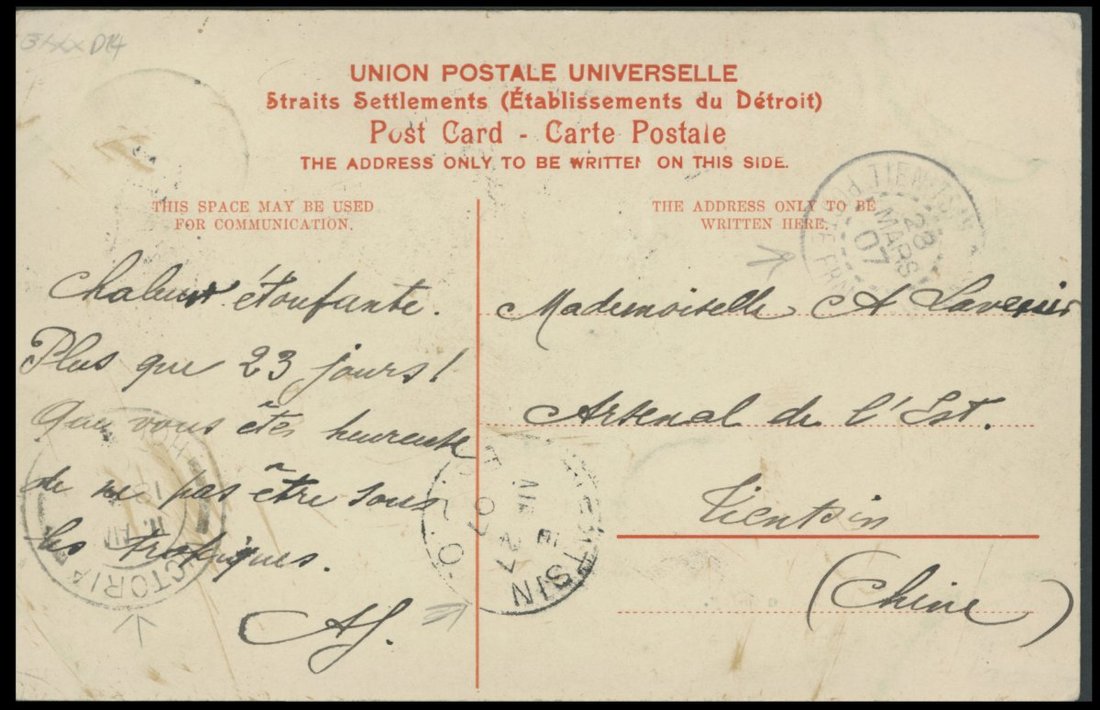 UNION POSTALE UNIVERSELLE
Straits Settlements (Établissements du Détroit)
Post Card - Carte Postale
THE ADDRESS ONLY TO BE WRITTEN ON THIS SIDE.
THIS SPACE MAY BE USED
FOR COMMUNICATION.
THE ADDRESS ONLY TO BE
WRITTEN HERE.
28
MARS
07
Chaleur étoufante.
Plus que 23 jours!
Que vous êtes heureuse
de ne pas être sous
les tropiques.
AJ.
Mademoiselle A Lavessier
Arsenal de l'Est.
Tientsin
(Chine)
VICTORIA
TIENTSIN